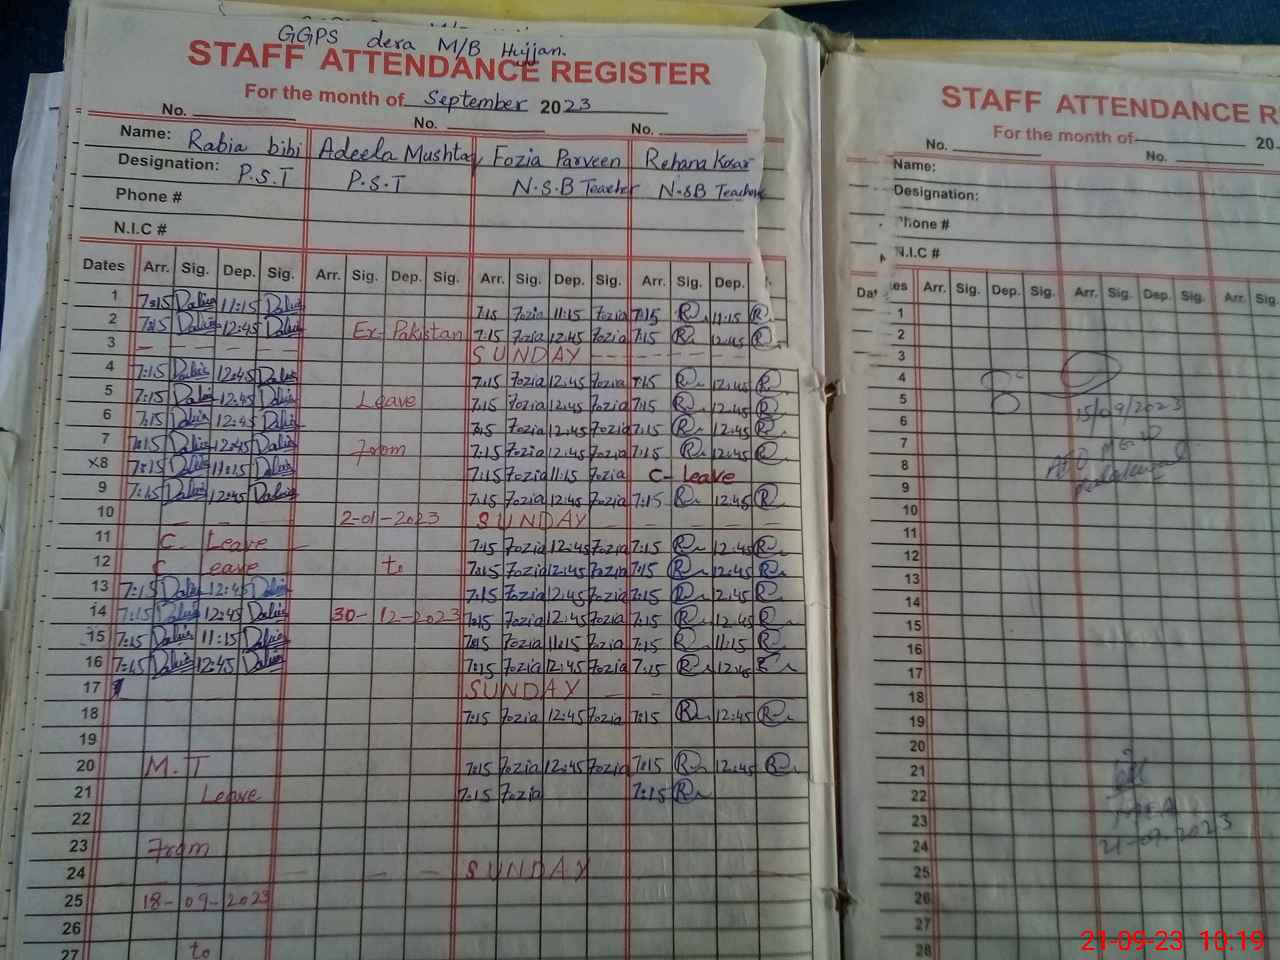 GGPS dera M/B Hujjan.
STAFF ATTENDANCE REGISTER
For the month of September 2023
No. No. No.
Name: Rabia bibi Adeela Mushtaq Fozia Parveen Rehana Kosar
Designation: P.S.T P.S.T N.S.B Teacher N.SB Teacher
Phone #
N.I.C #
Dates Arr. Sig. Dep. Sig. Arr. Sig. Dep. Sig. Arr. Sig. Dep. Sig. Arr. Sig. Dep.
1 7:15 11:15 7:15 Fozia 11:15 Fozia 7:15 R 11:15 R
2 7:15 12:45 Ex Pakistan 7:15 Fozia 12:45 Fozia 7:15 R 12:45 R
3 SUNDAY
4 7:15 12:45 7:15 Fozia 12:45 Fozia 7:15 R 12:45 R
5 7:15 12:45 Leave 7:15 Fozia 12:45 Fozia 7:15 R 12:45 R
6 7:15 12:45 7:15 Fozia 12:45 Fozia 7:15 R 12:45 R
7 7:15 12:45 From 7:15 Fozia 12:45 Fozia 7:15 R 12:45 R
x8 7:15 11:15 7:15 Fozia 11:15 Fozia C- Leave
9 7:15 12:45 7:15 Fozia 12:45 Fozia 7:15 R 12:45 R
10 2-01-2023 SUNDAY
11 C. Leave 7:15 Fozia 12:45 Fozia 7:15 R 12:45 R
12 C Leave to 7:15 Fozia 12:45 Fozia 7:15 R 12:45 R
13 7:15 12:45 7:15 Fozia 12:45 Fozia 7:15 R 12:45 R
14 7:15 12:45 30-12-2023 7:15 Fozia 12:45 Fozia 7:15 R 12.45 R
15 7:15 11:15 7:15 Fozia 11:15 Fozia 7:15 R 11:15 R
16 7:15 12:45 7:15 Fozia 12:45 Fozia 7:15 R 12:45 R
17 SUNDAY
18 7:15 Fozia 12:45 Fozia 7:15 R 12:45 R
19
20 M.T 7:15 Fozia 12:45 Fozia 7:15 R 12:45 R
21 Leave 7:15 Fozia 7:15 R
22
23 From
24 SUNDAY
25 18-09-2023
26
27 to
STAFF ATTENDANCE R
For the month of 20
No. No.
Name:
Designation:
Phone #
N.I.C #
Arr. Sig. Dep. Sig. Arr. Sig. Dep. Sig. Arr. Sig.
1
2
3
4
5 15/09/2023
6
7
8
9
10
11
12
13
14
15
16
17
18
19
20
21
22
23
24 21-09-2023
25
26
27
28
21-09-23 10:19